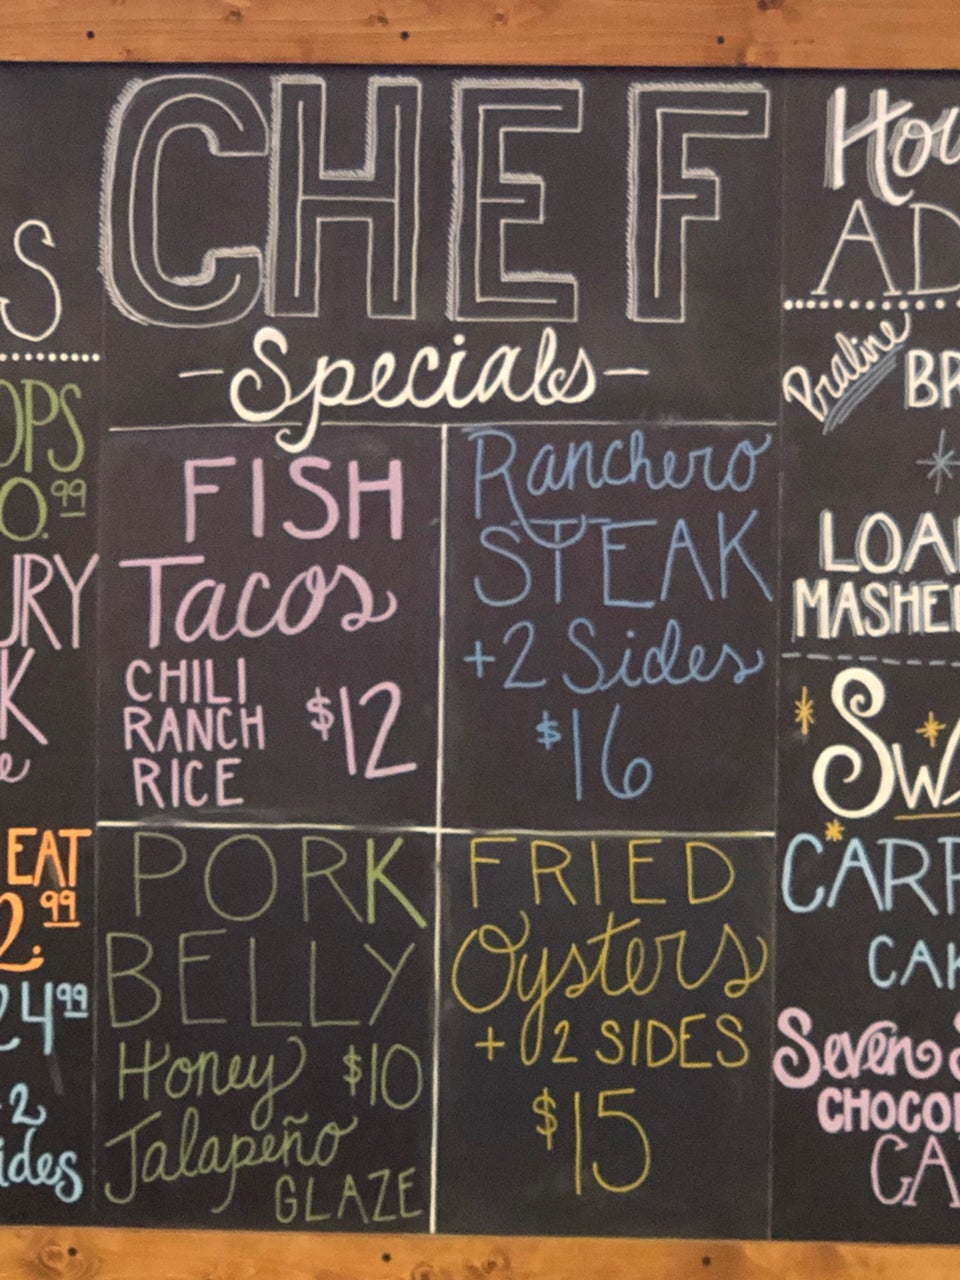 CHEF
-Specials-
FISH
Tacos
CHILI
RANCH
RICE
$12
Ranchero
STEAK
+2 Sides
$16
PORK
BELLY
Honey $10
Jalapeño
GLAZE
FRIED
Oysters
+ 2 SIDES
$15
S
OPS
0.99
URY
K
e
EAT
2.99
24 99
2
ides
Hou
AD
Praline BR
LOA
MASHED
Swe
CARR
CAK
Seven S
CHOCOL
CA